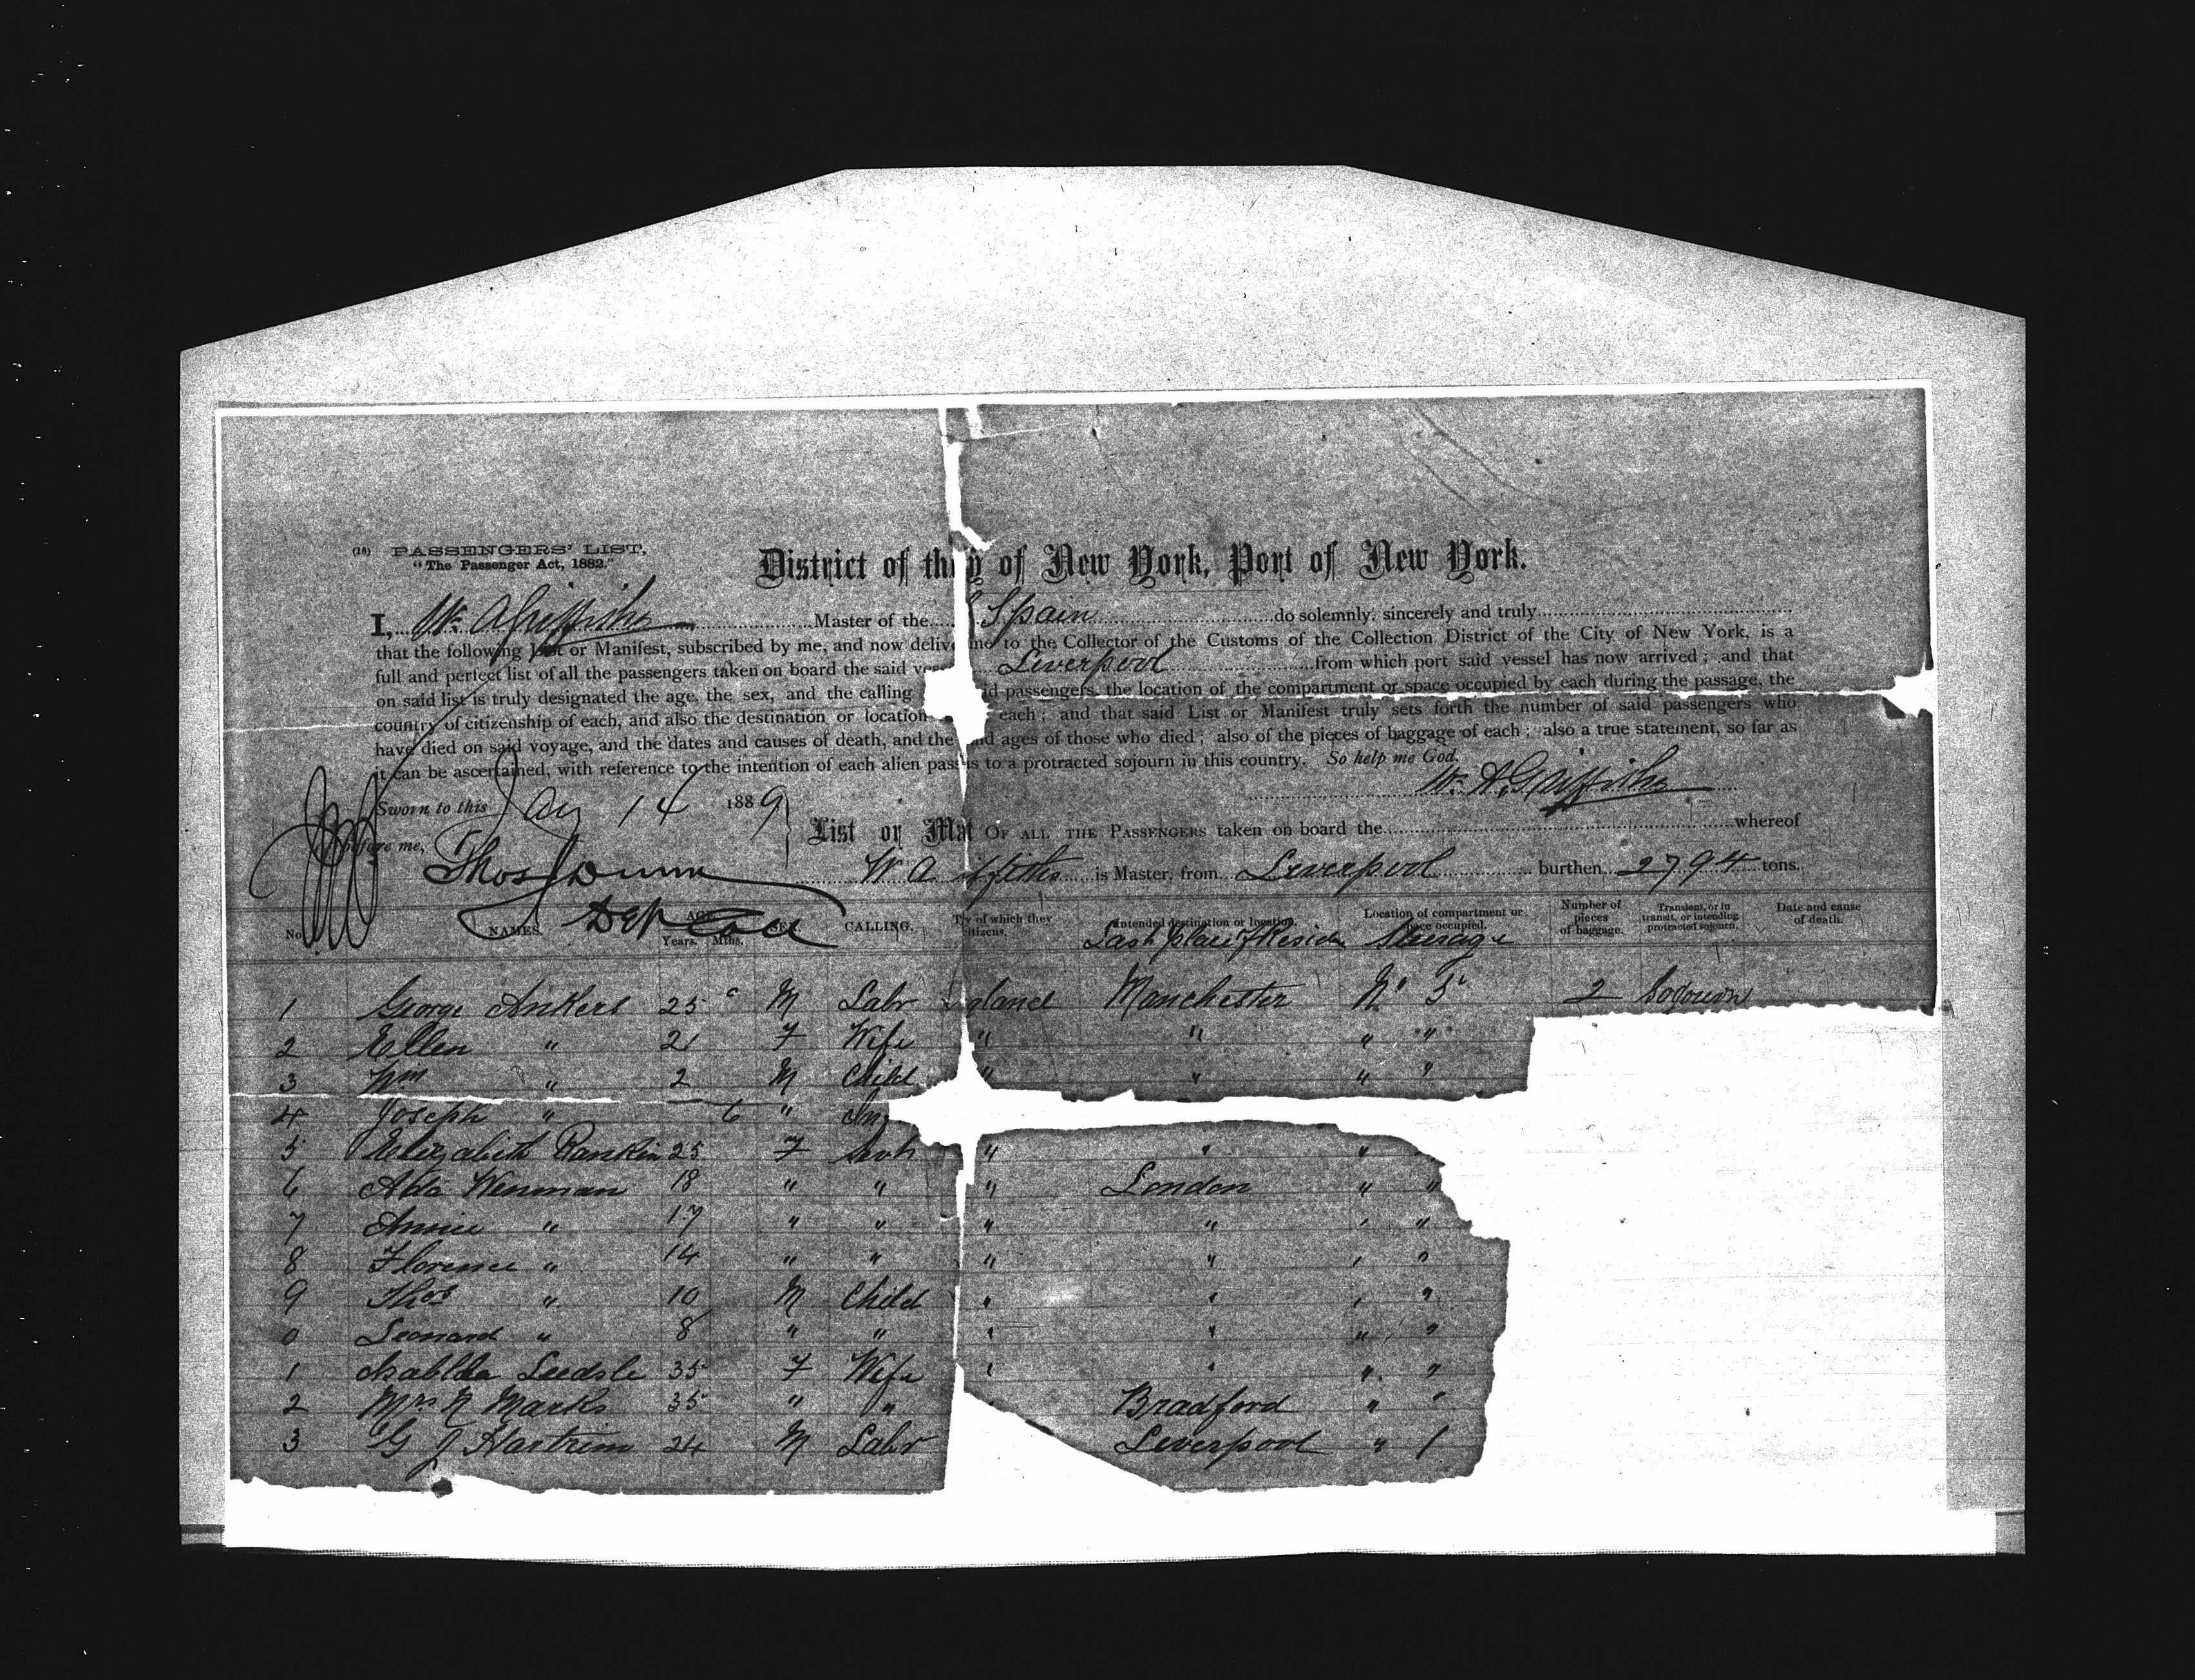 (18) PASSENGERS' LIST.
"The Passenger Act, 1882."
District of th y of New York, Port of New York.
I, Wm A Griffiths Master of the S Spain do solemnly, sincerely and truly
that the following List or Manifest, subscribed by me, and now deliv me to the Collector of the Customs of the Collection District of the City of New York, is a
full and perfect list of all the passengers taken on board the said ves Liverpool from which port said vessel has now arrived; and that
on said list is truly designated the age, the sex, and the calling id passengers, the location of the compartment or space occupied by each during the passage, the
country of citizenship of each, and also the destination or location each; and that said List or Manifest truly sets forth the number of said passengers who
have died on said voyage, and the dates and causes of death, and the nd ages of those who died; also of the pieces of baggage of each; also a true statement, so far as
it can be ascertained, with reference to the intention of each alien pass s to a protracted sojourn in this country. So help me God.
Wm A. Griffiths
Sworn to this Jany 14 1889
before me,
List or Ma OF ALL THE PASSENGERS taken on board the whereof
Thos J Dunn
W A iffiths is Master, from Liverpool burthen 2794 tons.
Dep Coll
No. NAMES. AGE Years. Mths. SEX. CALLING. y of which they citizens. Intended destination or location. Location of compartment or space occupied. Number of pieces of baggage. Transient, or in transit, or intending protracted sojourn. Date and cause of death.
Last place of Reside Steerage
1 George Ankers 25 M Labr gland Manchester No 5 2 Sojourn
2 Ellen " 21 F Wife " " " "
3 Wm " 2 M Child " " " "
4 Joseph " 6 " Inf
5 Elizabeth Rankin 25 F " " " "
6 Ada Wenman 18 " " " London " "
7 Annie " 17 " " " " " "
8 Florence " 14 " " " " " "
9 Thos " 10 M Child " " " "
0 Leonard " 8 " " " " " "
1 35 F Wife " " " "
2 Mrs N Marks 35 " " Bradford " "
3 G J Hartrim 24 M Labr Liverpool " 1